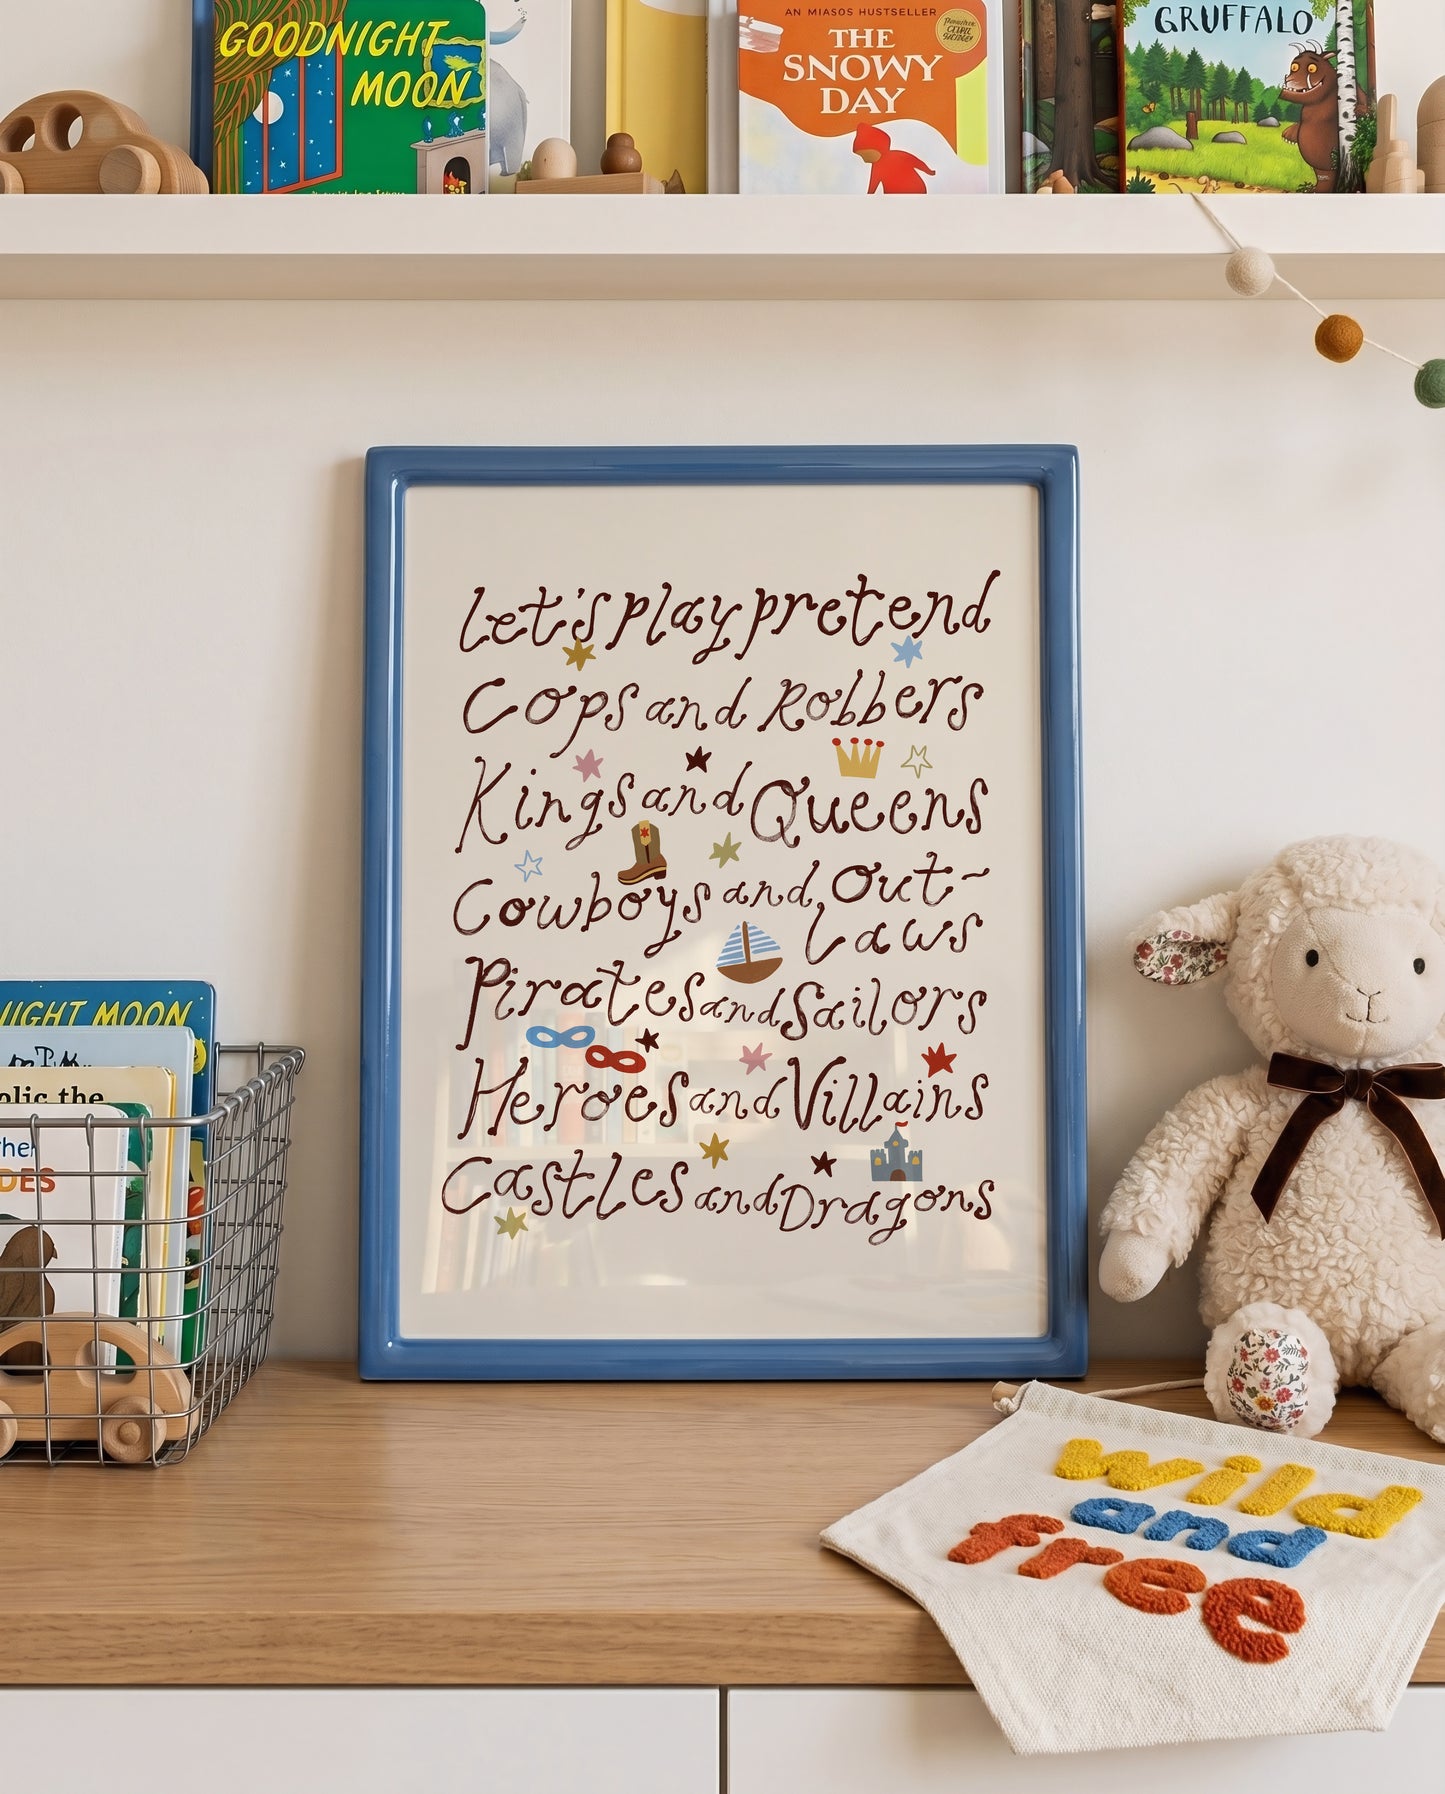 GOODNIGHT
MOON
AN MIASOS HUSTSELLER
THE
SNOWY
DAY
GRUFFALO
Let's play pretend
Cops and Robbers
Kings and Queens
Cowboys and Out-
Laws
Pirates and Sailors
Heroes and Villains
Castles and Dragons
IGHT MOON
olic the
her
DES
wild
and
free